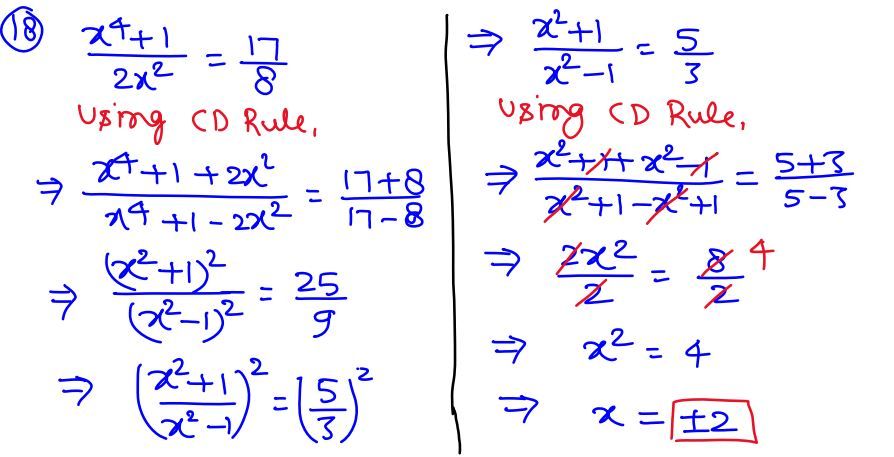 (18) (x⁴+1)/(2x²) = 17/8
Using CD Rule,
⇒ (x⁴+1+2x²)/(x⁴+1-2x²) = (17+8)/(17-8)
⇒ (x²+1)²/(x²-1)² = 25/9
⇒ ((x²+1)/(x²-1))² = (5/3)²
⇒ (x²+1)/(x²-1) = 5/3
Using CD Rule,
⇒ (x²+1+x²-1)/(x²+1-x²+1) = (5+3)/(5-3)
⇒ 2x²/2 = 8/2 4
⇒ x² = 4
⇒ x = ±2